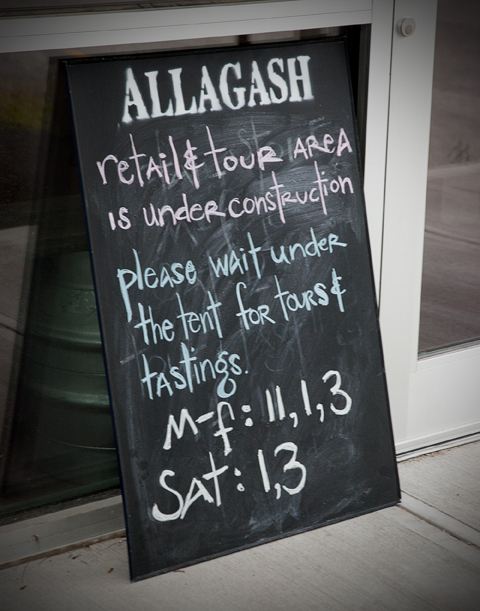 ALLAGASH
retail & tour AREA
is under construction
please wait under
the tent for tours &
tastings.
M-f: 11, 1, 3
SAT: 1, 3